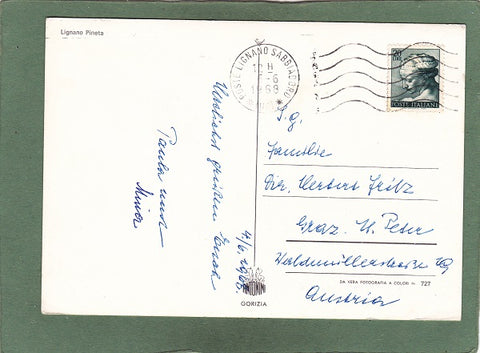 Lignano Pineta
POSTE LIGNANO SABBIADORO
20 LIRE
POSTE ITALIANE
Herzlichst grüßen Euch
Paula und
4/6. 1968.
S.g.
Familie
Dir. Herbert Fritz
Graz. St. Peter
Waldmüllerstraße
Austria
GORIZIA
DA VERA FOTOGRAFIA A COLORI N. 727